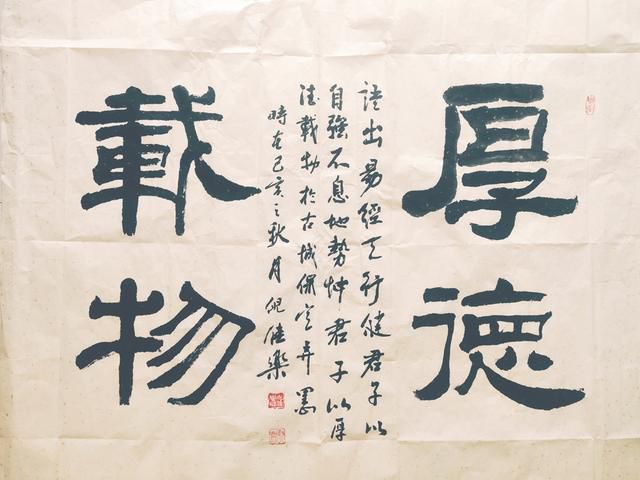 厚德
語出易經天行健君子以
自強不息地勢坤君子以厚
德載物於古城保定弄墨
時在己亥之秋月倪樂
載物